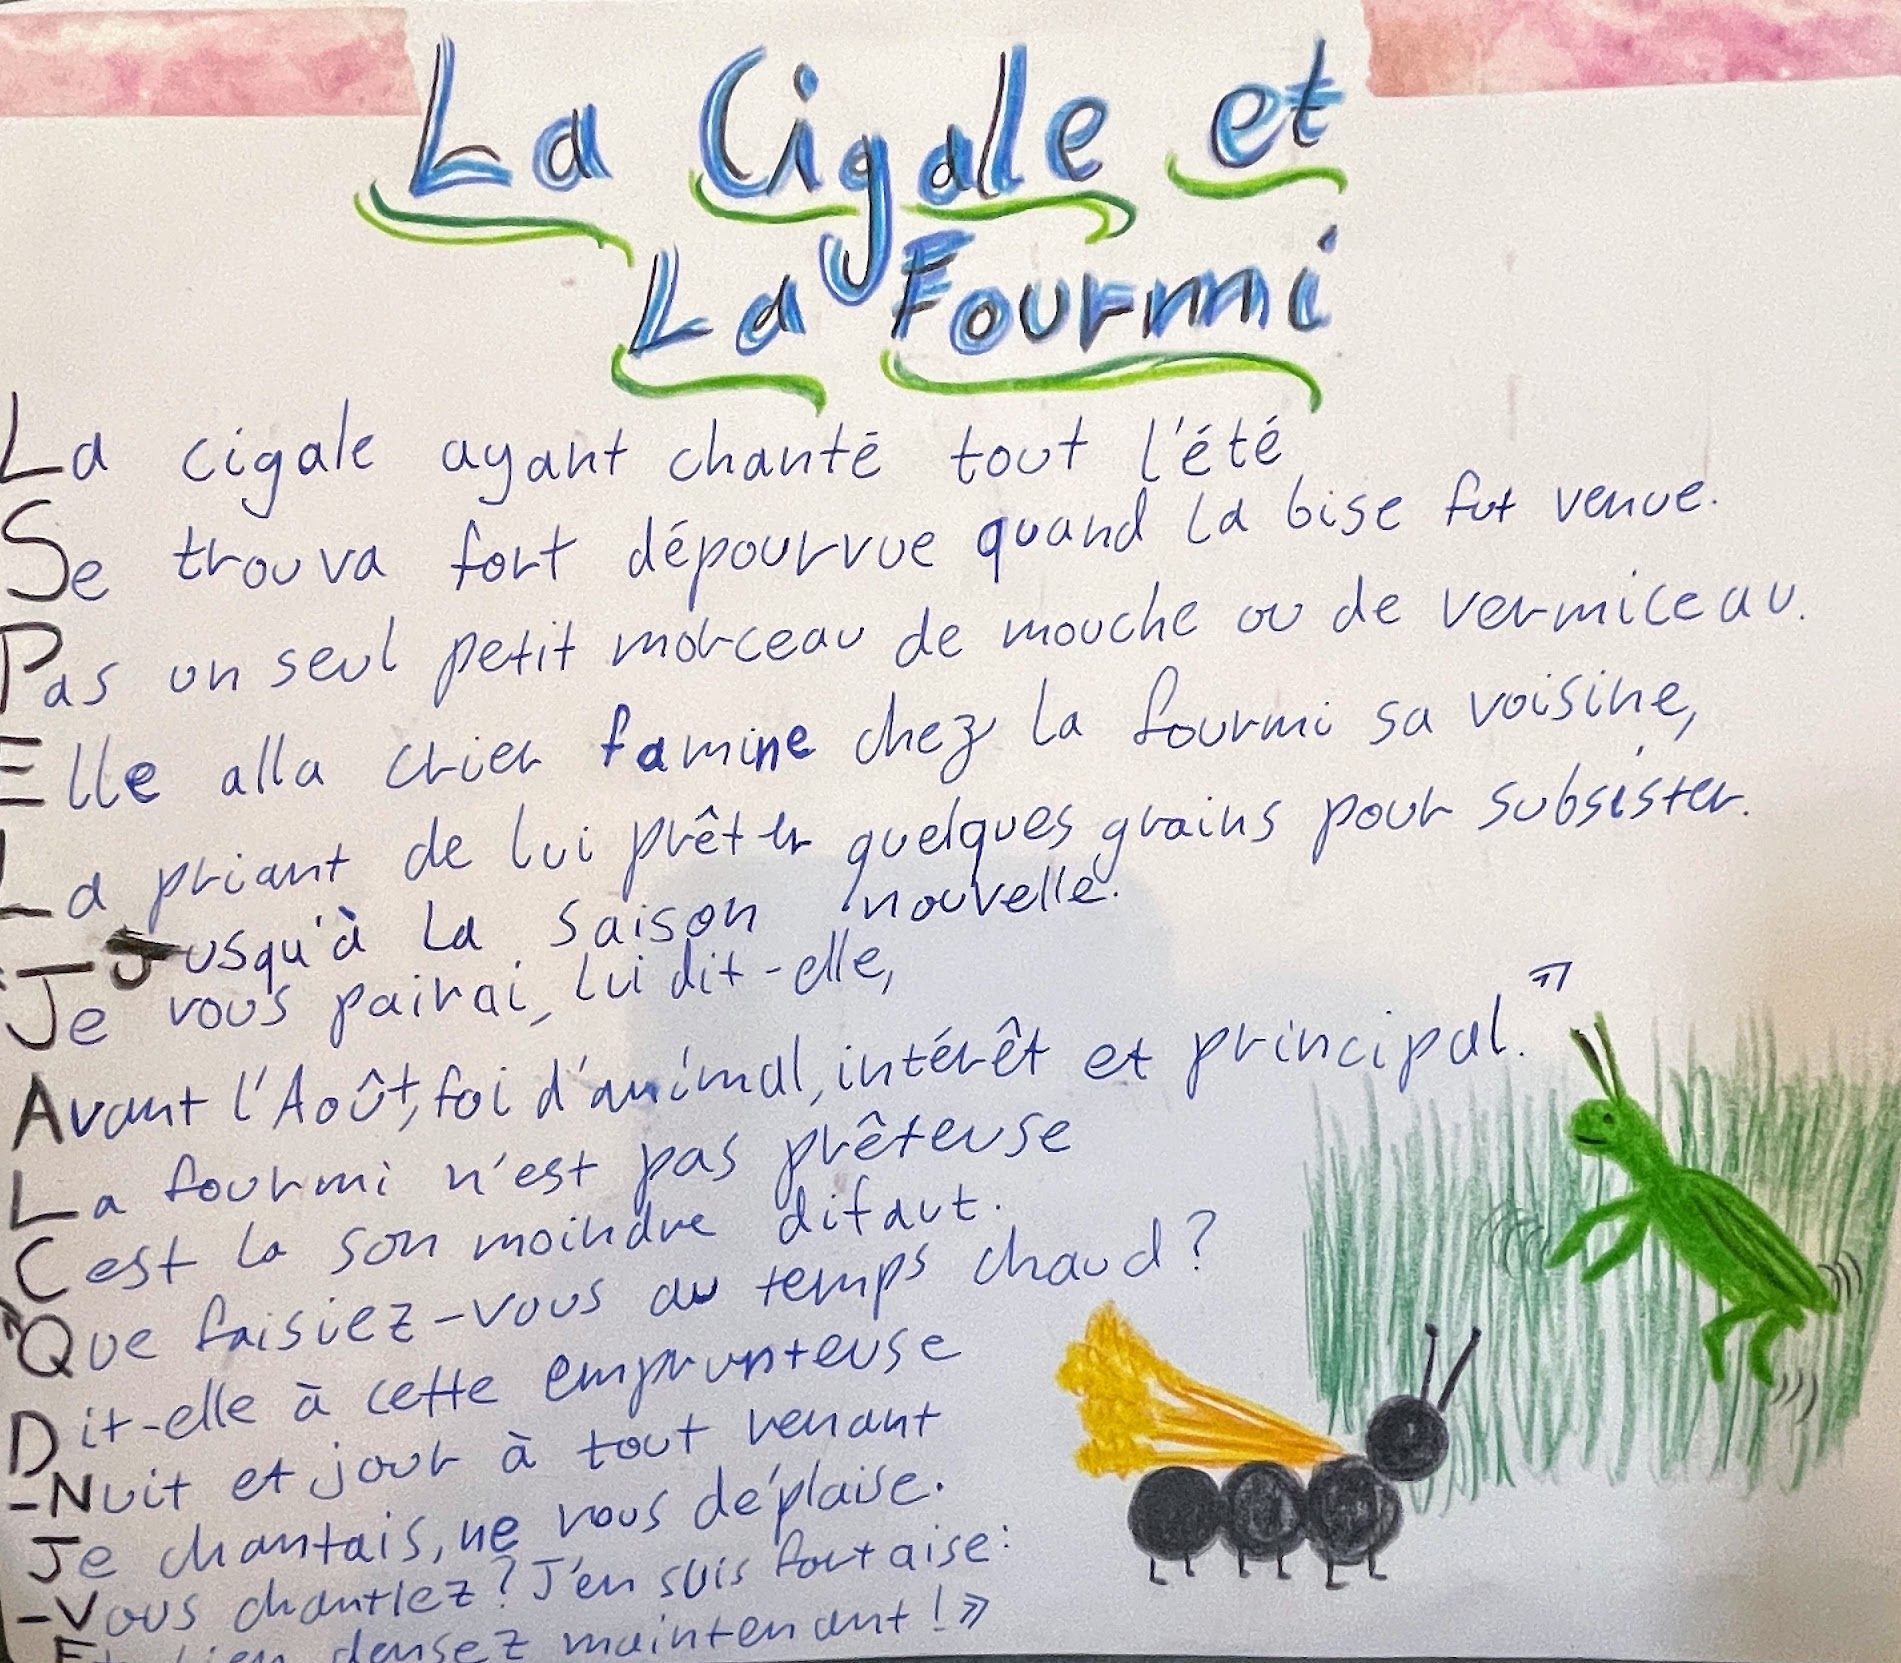 La Cigale et
La Fourmi
La cigale ayant chanté tout l'été
Se trouva fort dépourvue quand la bise fut venue.
Pas un seul petit morceau de mouche ou de vermiceau.
Elle alla crier famine chez la fourmi sa voisine,
La priant de lui prêter quelques grains pour subsister.
Jusqu'à la saison nouvelle.
Je vous pairai, lui dit-elle,
Avant l'Août, foi d'animal, intérêt et principal."
La fourmi n'est pas prêteuse
C est la son moindre difaut.
"Que faisiez-vous au temps chaud?
Dit-elle à cette emprunteuse
-Nuit et jour à tout venant
Je chantais, ne vous déplaise.
-Vous chantiez? J'en suis fort aise:
Et bien dansez maintenant!»